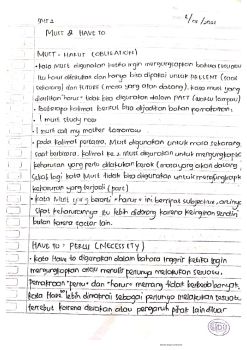 Must & Have to
MUST = HARUT (OBLIGATION)
• kata Must digunakan ketika ingin mengungkapkan bahwa sesuatu
itu harus dilakukan dan hanya bisa dipakai untuk PRESENT (saat
sekarang) dan FUTURE (masa yang akan datang). Kata must yang
diartikan "harus" tidak bisa digunakan dalam PAST (waktu lampau)
• Beberapa kalimat berikut bisa dijadikan bahan pemahaman:
• I must study now
• I must call my mother tomorrow
• pada kalimat pertama, Must digunakan untuk masa sekarang,
saat berbicara. Kalimat ke 2 must digunakan untuk mengungkapkan
keharusan yang perlu dilakukan besok (masa yang akan datang).
Jelas bagi kata Must tidak digunakan untuk
keharusan yang terjadi (past)
• kata Must yang berarti "harus" ini bersifat subjective, artinya
sifat keharusannya itu lebih didorong karena keinginan sendiri
bukan karena factor lain.
HAVE TO = PERLU (NECESSITY)
• kata Have to digunakan dalam bahasa Inggris ketika ingin
mengungkapkan atau menulis perlunya melakukan sesuatu.
Pemaknaan "perlu" dan "harus" memang tidak berbeda banyak.
kata Have to lebih dimaknai sebagai perlunya melakukan sesuatu
tersebut karena desakan atau pengaruh pihak lain diluar